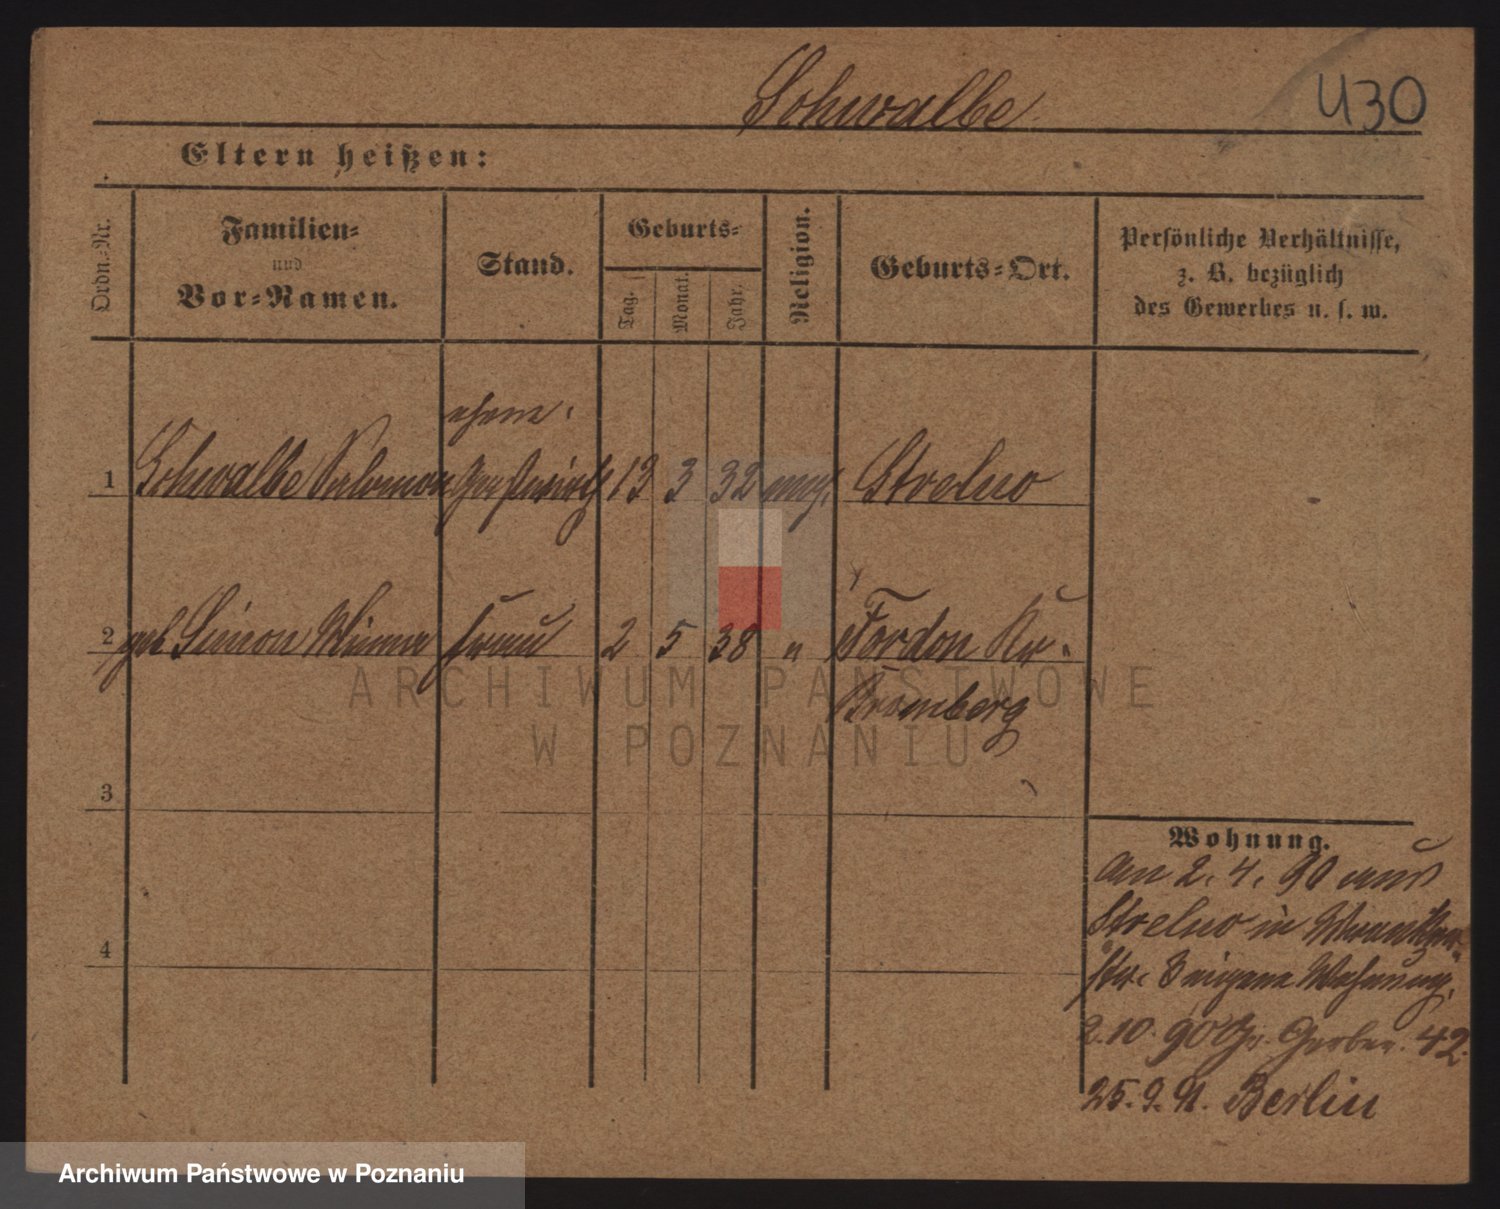 Schwalbe
430
Eltern heißen:
Ordn.-Nr.
Familien-
und
Vor-Namen.
Stand.
Geburts-
Tag.
Monat.
Jahr.
Religion.
Geburts-Ort.
Persönliche Verhältnisse,
z. B. bezüglich
des Gewerbes u. s. w.
ehem.
1 Schwalbe Salomon Gastwirth 13 3 32 mos. Strelno
2 geb Simon Minna Frau 2 5 38 " Fordon Kr.
Bromberg
3
4
Wohnung.
am 2. 4. 90 aus
Strelno in
str. 3 eigene Wohnung.
2.10.90 Gr. Gerber. 42.
25.9.91. Berlin
ARCHIWUM PAŃSTWOWE
W POZNANIU
Archiwum Państwowe w Poznaniu